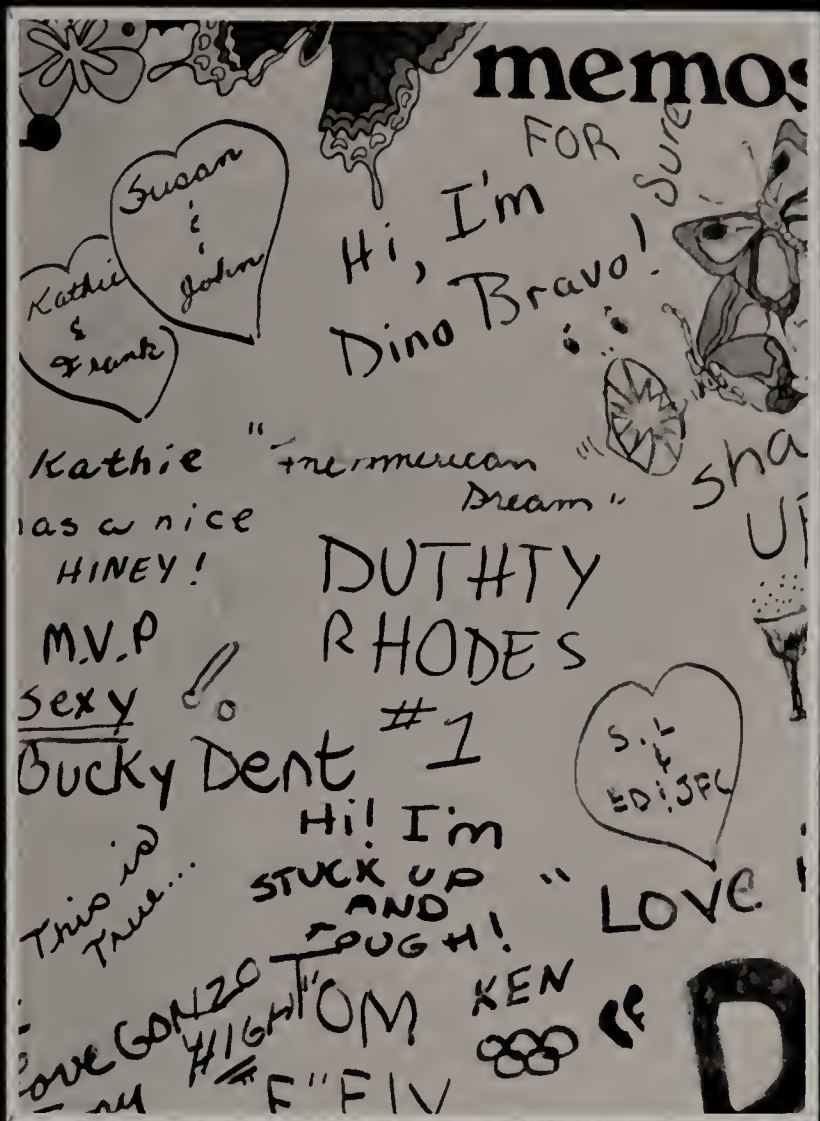 memos
FOR
Sure
Susan
&
John
Hi, I'm
Dino Bravo!
Kathie
&
Frank
Kathie
has a nice
HINEY!
"The American
Dream"
DUTHTY
RHODES
#1
M.V.P
Sexy
Bucky Dent
S.L
&
ED!JFC
This is
True...
Hi! I'm
STUCK UP
AND
TOUGH!
"LOVE
Love GONZO
HIGH
TOM
KEN
"F" FIV
D